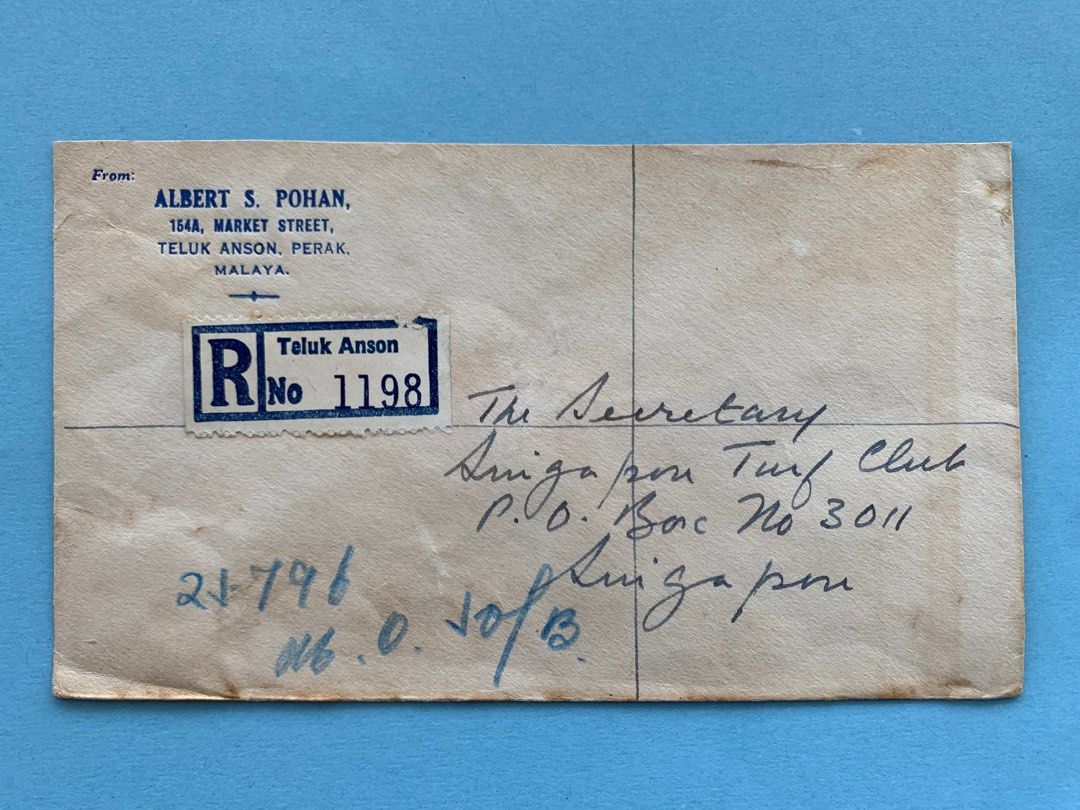 From:
ALBERT S. POHAN,
154A, MARKET STREET,
TELUK ANSON, PERAK,
MALAYA.
R
Teluk Anson
No 1198
The Secretary
Singapore Turf Club
P. O. Box No 3011
Singapore
25796
M. O. 50/B.